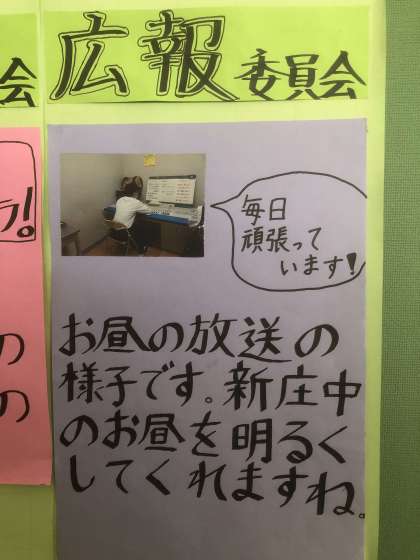 会
広報委員会
ラ!
毎日
頑張って
います!
の
の
お昼の放送の
様子です。新庄中
のお昼を明るく
してくれますね。